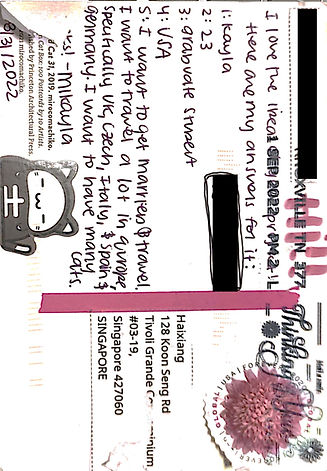 I love the
here are my answers for it:
1: Kayla
2: 23
3: graduate student
4: USA
5: I want to get married & travel.
I want to travel a lot in europe
specifically UK, Czech, Italy, & Spain &
Germany. I want to have many
cats.
-Mikayla
8/31/2022
Cat 31, 2019, mirocomachiko.
Cat Box: 100 Postcards by 10 Artists.
Published by Princeton Architectural Press.
mirocomachiko.
KNOXVILLE TN 377
1 SEP 2022 PM 2 L
Thinking of You
GLOBAL
FOREVER
USA
Haixiang
128 Koon Seng Rd
Tivoli Grande
#03-19,
Singapore 427060
SINGAPORE